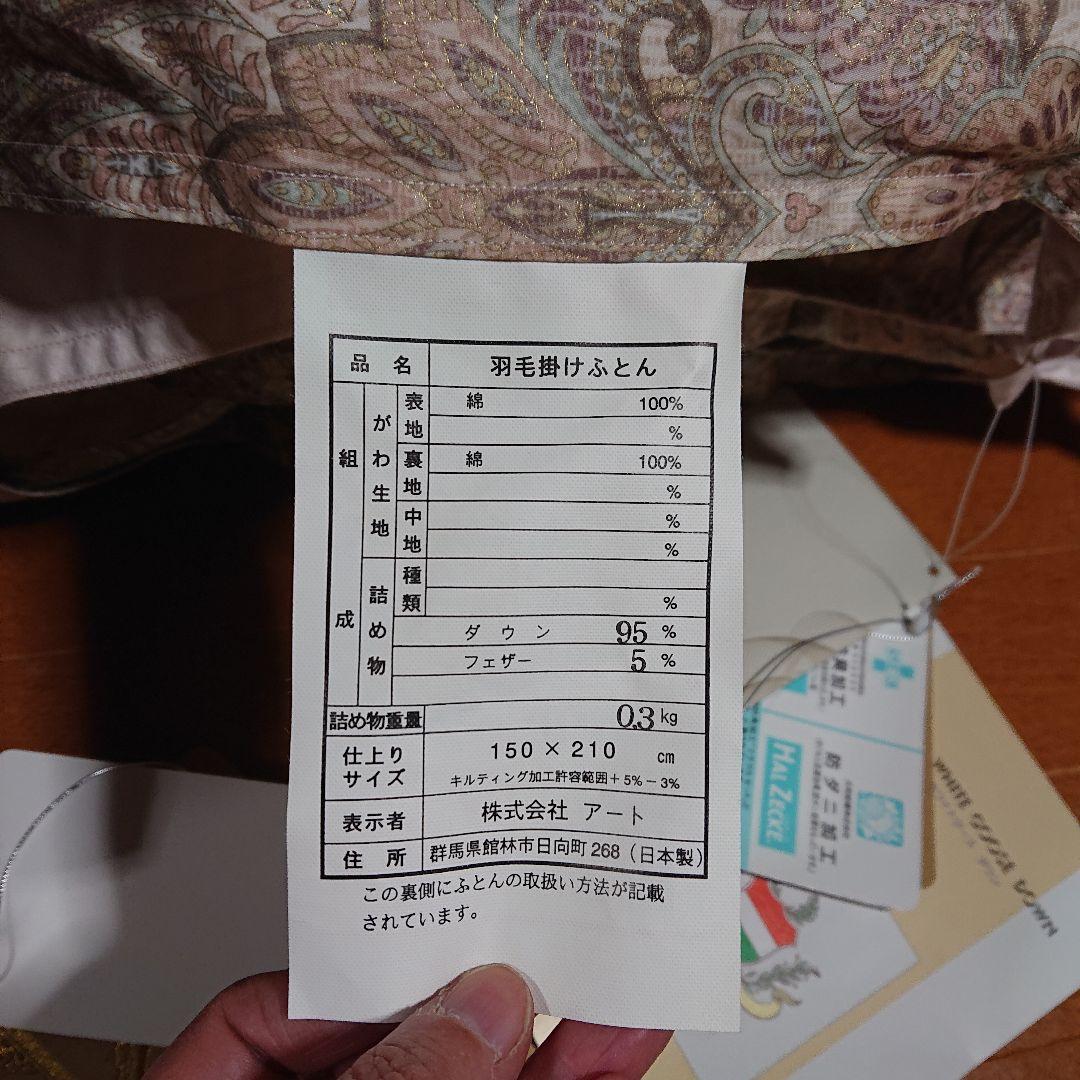 品 名 羽毛掛けふとん
組成
がわ生地
表地 綿 100%
%
裏地 綿 100%
%
中地 %
%
詰め物
種類
%
ダウン 95 %
フェザー 5 %
詰め物重量 0.3 kg
仕上りサイズ 150 × 210 cm
キルティング加工許容範囲+5%−3%
表示者 株式会社 アート
住 所 群馬県館林市日向町268(日本製)
この裏側にふとんの取扱い方法が記載
されています。
加工
HAL ZECKE
防ダニ加工
WHITE
DOWN